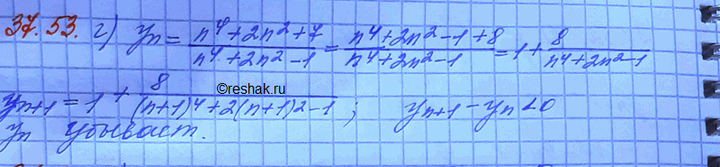 37.53. г) yₙ = (n⁴+2n²+7)/(n⁴+2n²-1) = (n⁴+2n²-1+8)/(n⁴+2n²-1) = 1 + 8/(n⁴+2n²-1)
©reshak.ru
yₙ₊₁ = 1 + 8/((n+1)⁴+2(n+1)²-1) ; yₙ₊₁ - yₙ < 0
yₙ убывает.